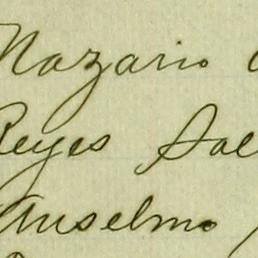 Nazario
Reyes Sal
Anselmo